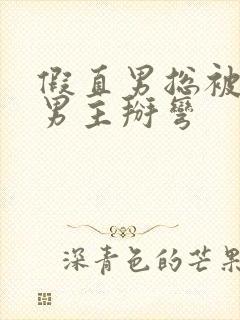 假直男揔被
男主掰彎
深青色的芒果